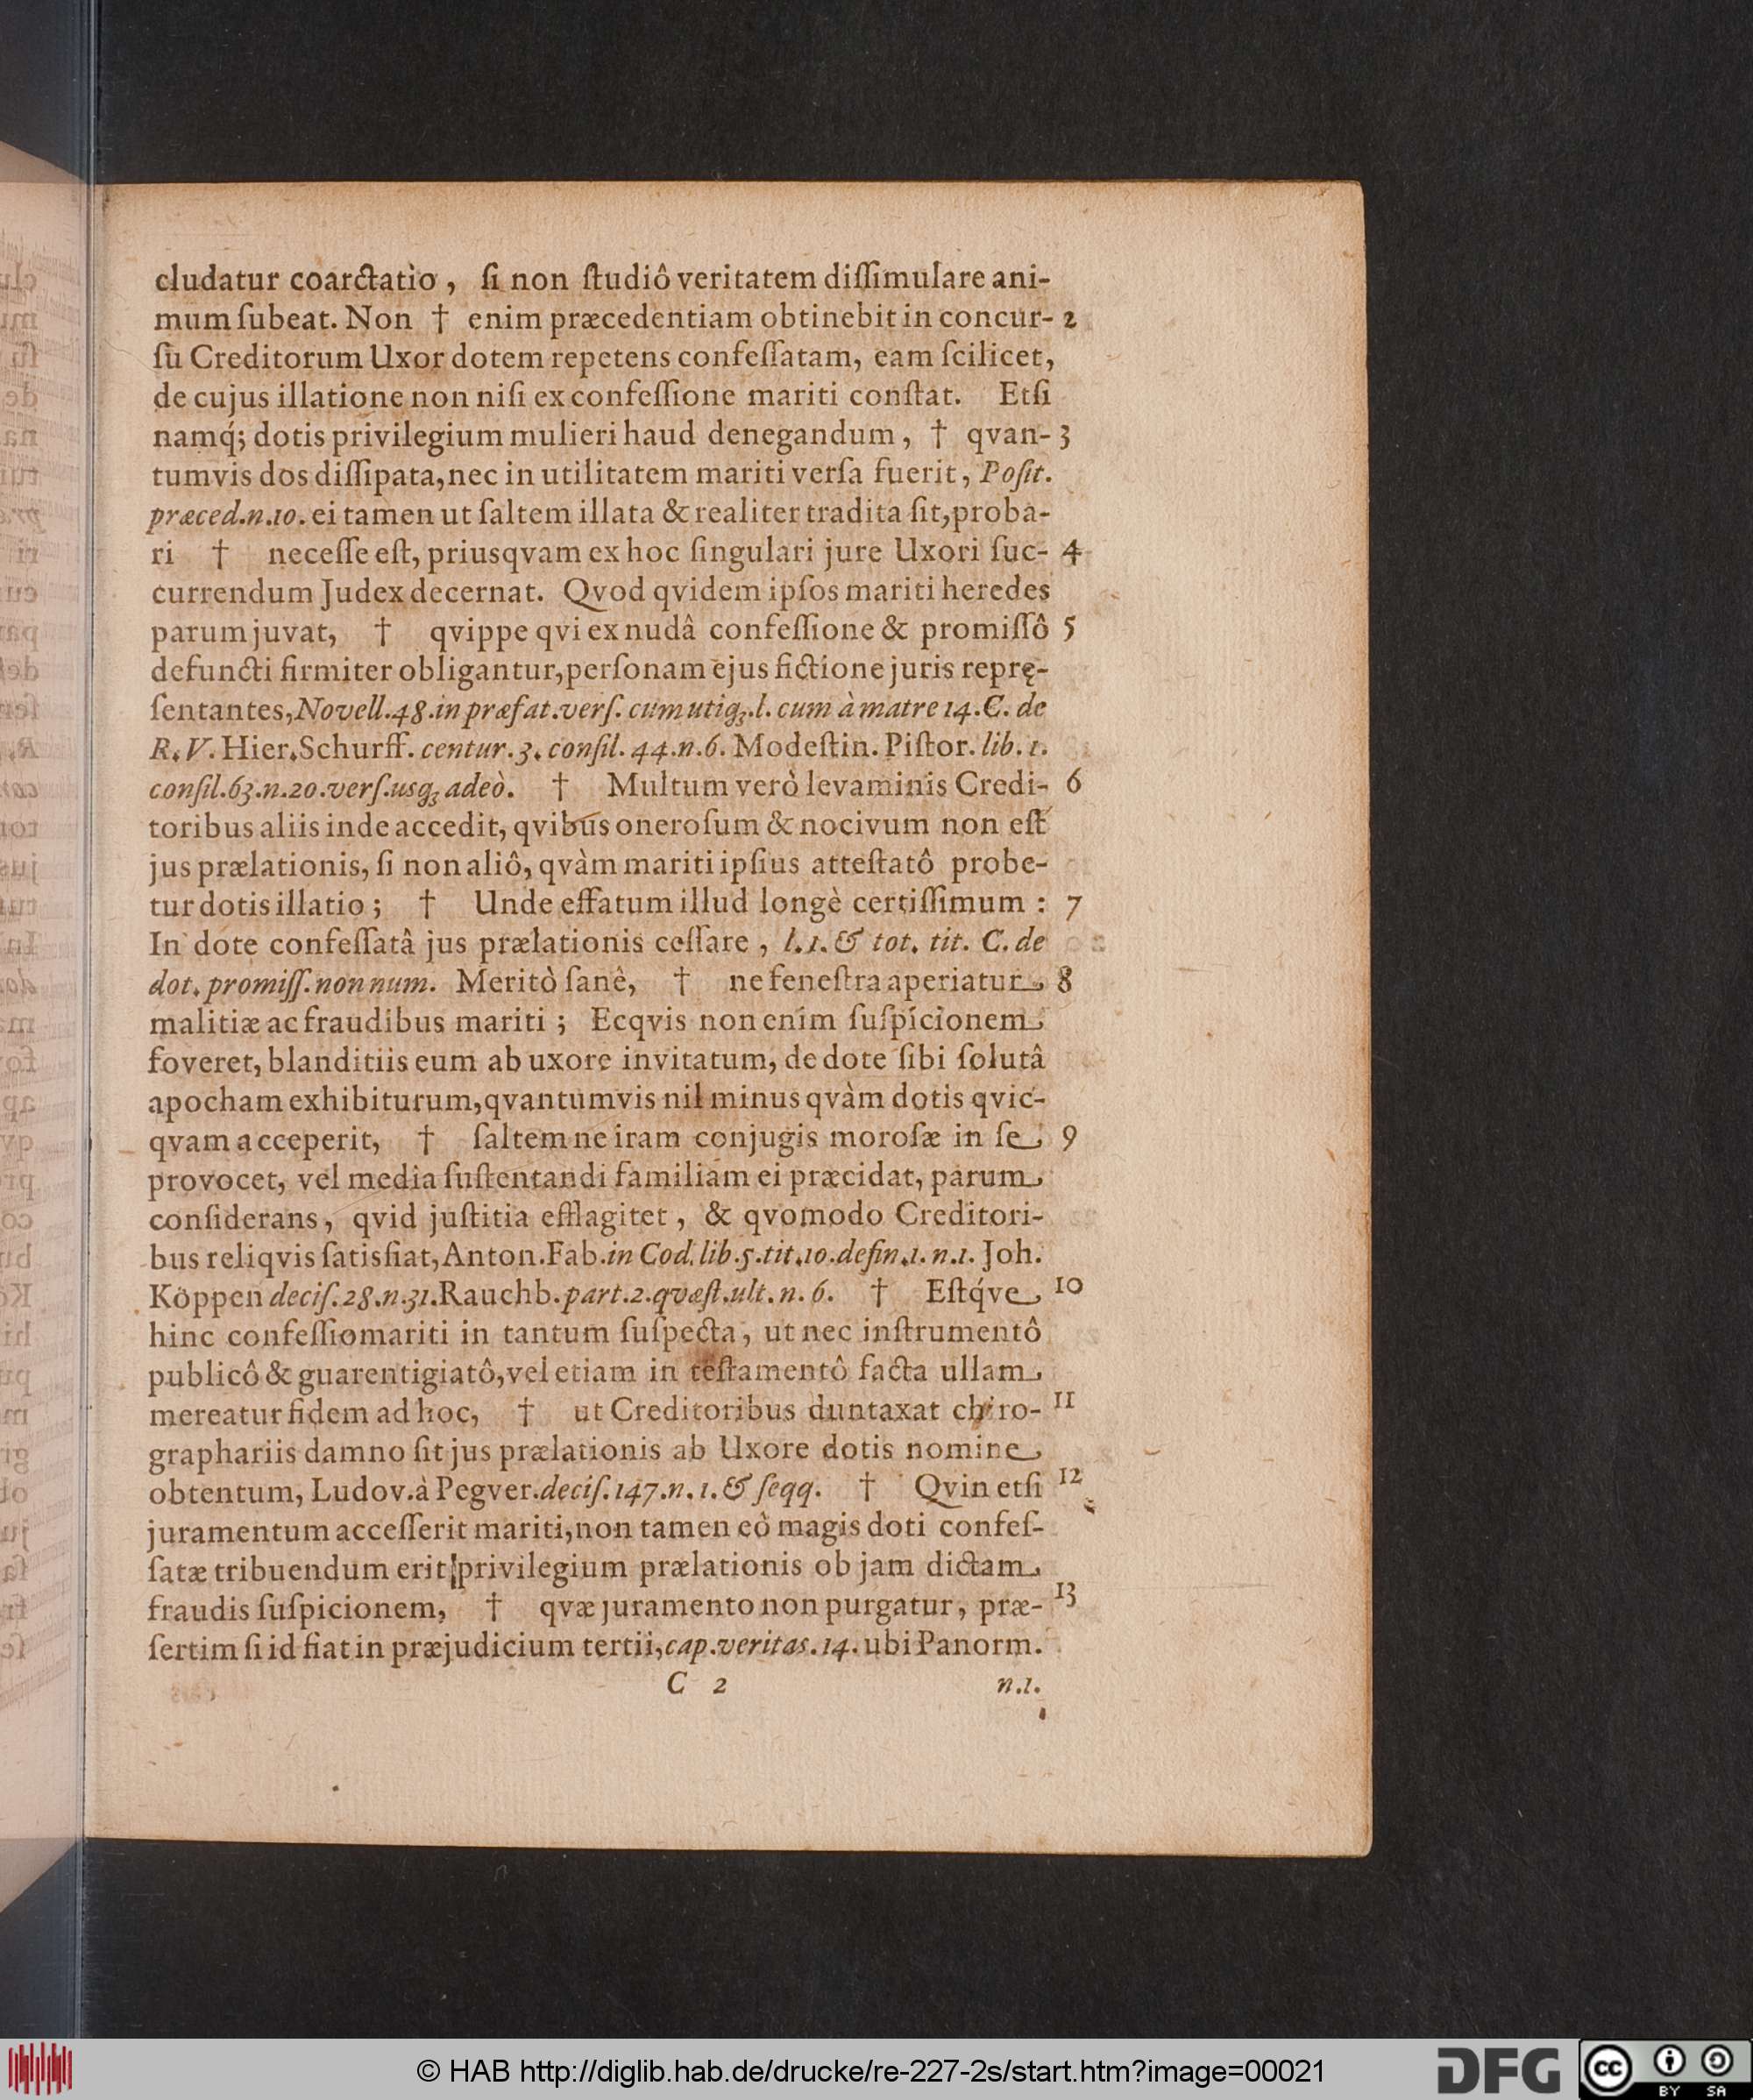 cludatur coarctatio, ſi non ſtudiô veritatem diſſimulare ani-
mum ſubeat. Non † enim præcedentiam obtinebit in concur- 2
ſu Creditorum Uxor dotem repetens confeſſatam, eam ſcilicet,
de cujus illatione non niſi ex confeſſione mariti conſtat. Etſi
namq́; dotis privilegium mulieri haud denegandum, † qvan- 3
tumvis dos diſſipata, nec in utilitatem mariti verſa fuerit, Poſit.
præced.n.10. ei tamen ut ſaltem illata & realiter tradita ſit, proba-
ri † neceſſe eſt, priusqvam ex hoc ſingulari jure Uxori ſuc- 4
currendum Judex decernat. Qvod qvidem ipſos mariti heredes
parum juvat, † qvippe qvi ex nudâ confeſſione & promiſſô 5
defuncti firmiter obligantur, perſonam ejus fictione juris reprę-
ſentantes, Novell.48.in præfat.verſ. cum utiq;.l. cum à matre 14.C. de
R.V. Hier.Schurff. centur.3.conſil.44.n.6. Modeſtin. Piſtor. lib.1.
conſil.63.n.20.verſ.usq; adeò. † Multum verò levaminis Credi- 6
toribus aliis inde accedit, qvibus oneroſum & nocivum non eſt
jus prælationis, ſi non aliô, qvàm mariti ipſius atteſtatô probe-
tur dotis illatio; † Unde effatum illud longè certiſſimum: 7
In dote confeſſatâ jus prælationis ceſſare, l.1. & tot. tit. C. de
dot. promiſſ. non num. Meritò ſanè, † ne feneſtra aperiatur 8
malitiæ ac fraudibus mariti; Ecqvis non enim ſuſpicionem
foveret, blanditiis eum ab uxore invitatum, de dote ſibi ſolutâ
apocham exhibiturum, qvantumvis nil minus qvàm dotis qvic-
qvam acceperit, † ſaltem ne iram conjugis moroſæ in ſe 9
provocet, vel media ſuſtentandi familiam ei præcidat, parum
conſiderans, qvid juſtitia efflagitet, & qvomodo Creditori-
bus reliqvis ſatisfiat, Anton.Fab.in Cod.lib.5.tit.10.defin.1.n.1. Joh.
Köppen deciſ.28.n.31. Rauchb. part.2.qvæſt.ult.n.6. † Eſtq́ve 10
hinc confeſſio mariti in tantum ſuſpecta, ut nec inſtrumentô
publicô & guarentigiatô, vel etiam in teſtamentô facta ullam
mereatur fidem ad hoc, † ut Creditoribus duntaxat chiro- 11
graphariis damno ſit jus prælationis ab Uxore dotis nomine
obtentum, Ludov. à Pegver. deciſ.147.n.1. & ſeqq. † Qvin etſi 12
juramentum acceſſerit mariti, non tamen eò magis doti confeſ-
ſatæ tribuendum erit privilegium prælationis ob jam dictam
fraudis ſuſpicionem, † qvæ juramento non purgatur, præ- 13
ſertim ſi id fiat in præjudicium tertii, cap.veritas.14. ubi Panorm.
C 2 n.1.
© HAB http://diglib.hab.de/drucke/re-227-2s/start.htm?image=00021
DFG
cc BY SA